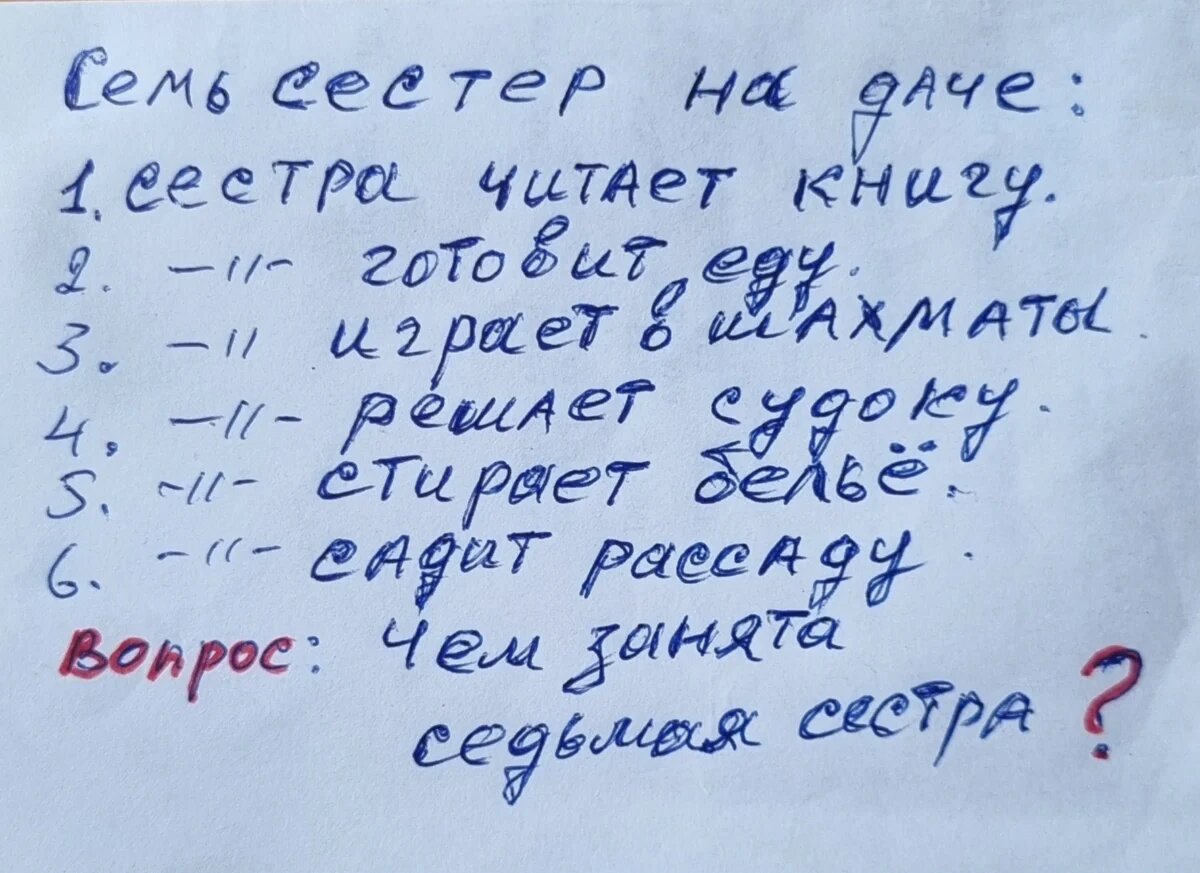 Семь сестер на даче:
1. сестра читает книгу.
2. –"– готовит еду.
3. –" играет в шахматы.
4. –"– решает судоку.
5. –"– стирает бельё.
6. –"– садит рассаду.
Вопрос: Чем занята
седьмая сестра?